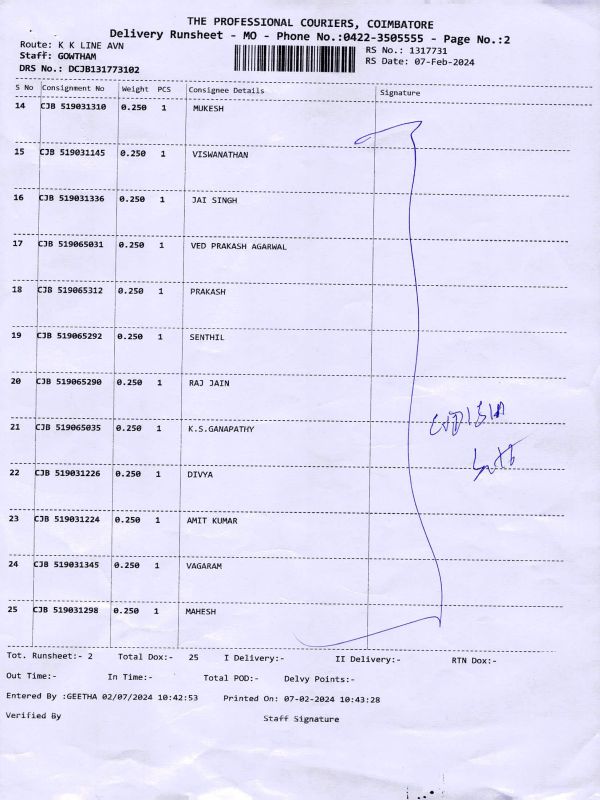 THE PROFESSIONAL COURIERS, COIMBATORE
Delivery Runsheet - MO - Phone No.:0422-3505555 - Page No.:2
Route: K K LINE AVN
Staff: GOWTHAM
DRS No.: DCJB131773102
RS No.: 1317731
RS Date: 07-Feb-2024
S No Consignment No Weight PCS Consignee Details Signature
14 CJB 519031310 0.250 1 MUKESH
15 CJB 519031145 0.250 1 VISWANATHAN
16 CJB 519031336 0.250 1 JAI SINGH
17 CJB 519065031 0.250 1 VED PRAKASH AGARWAL
18 CJB 519065312 0.250 1 PRAKASH
19 CJB 519065292 0.250 1 SENTHIL
20 CJB 519065290 0.250 1 RAJ JAIN
21 CJB 519065035 0.250 1 K.S.GANAPATHY
22 CJB 519031226 0.250 1 DIVYA
23 CJB 519031224 0.250 1 AMIT KUMAR
24 CJB 519031345 0.250 1 VAGARAM
25 CJB 519031298 0.250 1 MAHESH
Tot. Runsheet:- 2 Total Dox:- 25 I Delivery:- II Delivery:- RTN Dox:-
Out Time:- In Time:- Total POD:- Delvy Points:-
Entered By :GEETHA 02/07/2024 10:42:53 Printed On: 07-02-2024 10:43:28
Verified By Staff Signature